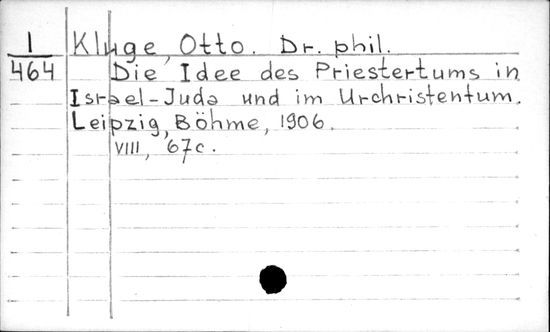 1 Kluge, Otto. Dr. phil.
464 Die Idee des Priestertums in
Israel-Juda und im Urchristentum.
Leipzig, Böhme, 1906.
VIII, 67c.